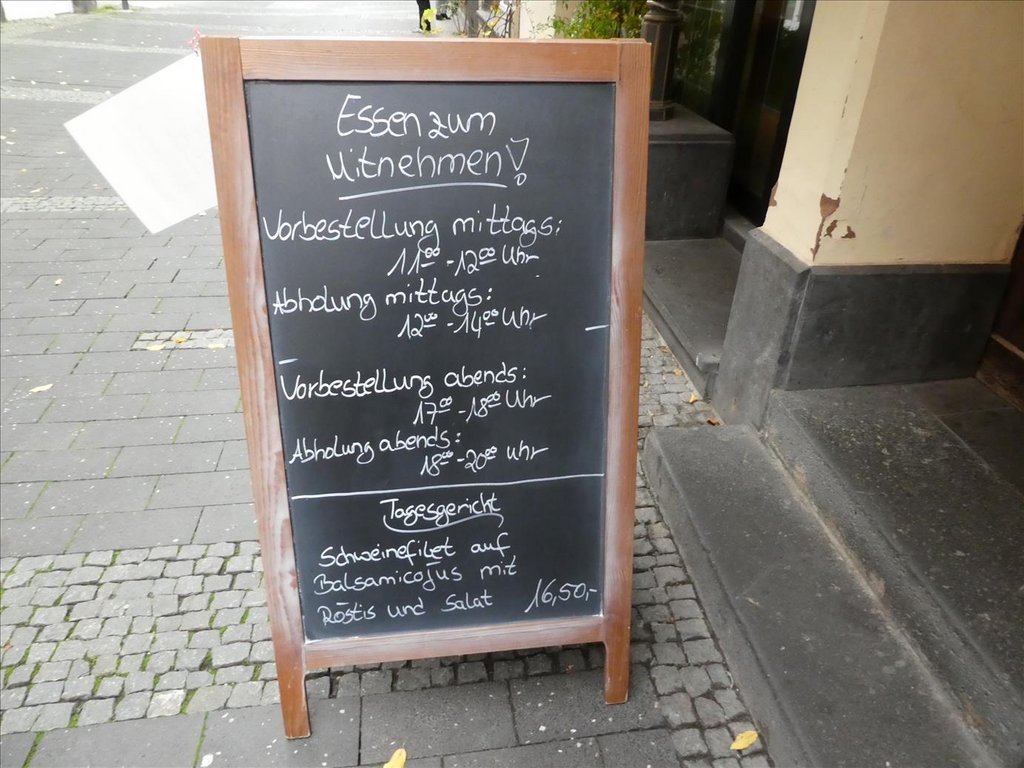 Essen zum
Mitnehmen!
Vorbestellung mittags:
11⁰⁰ - 12⁰⁰ Uhr
Abholung mittags:
12⁰⁰ - 14⁰⁰ Uhr
Vorbestellung abends:
17⁰⁰ - 18⁰⁰ Uhr
Abholung abends:
18⁰⁰ - 20⁰⁰ Uhr
Tagesgericht
Schweinefilet auf
Balsamicojus mit
Röstis und Salat 16,50,-